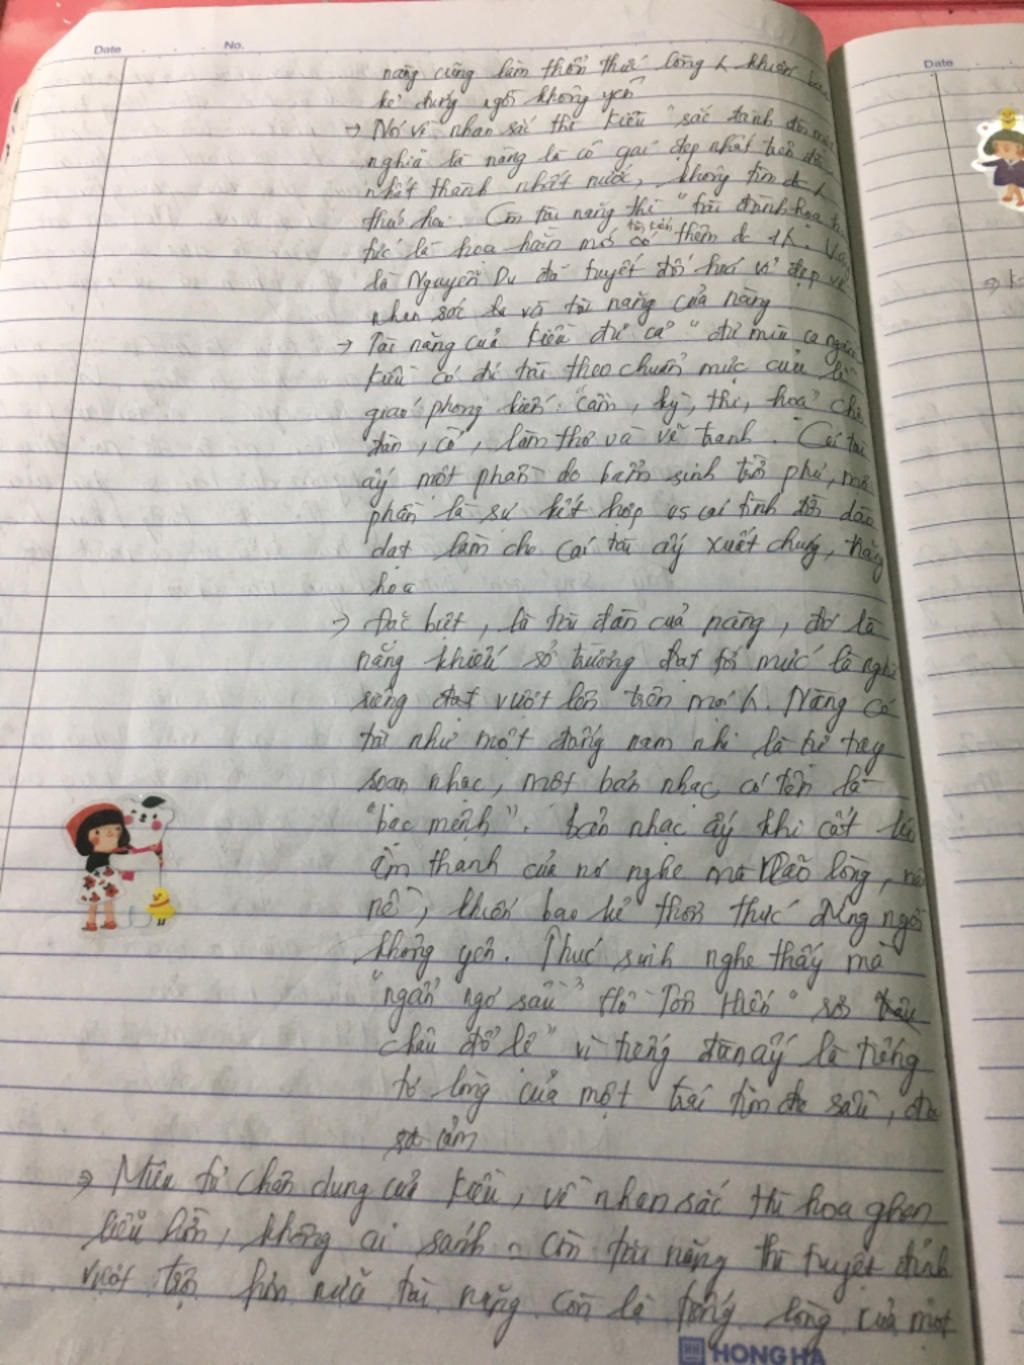 Date No.
nàng cũng làm thổn thức lòng k khiến bao
kẻ đứng ngồi không yên
→ Nói về nhan sắc thì Kiều "sắc đành đòi một
nghĩa là nàng là cô gái đẹp nhất trên đời
nhất thành nhất nước, không tìm đc k
thứ hai. Còn tài năng thì "tài đành họa
tức là họa hoằn mới có thêm đc 1k. Vậy
là Nguyễn Du đã tuyệt đối hoá vẻ đẹp về
nhan sắc và tài năng của nàng
→ Tài năng của Kiều đủ cả "đủ mùi ca ngâm
Kiều có đủ tài theo chuẩn mực của lễ
giáo phong kiến: "cầm, kỳ, thi, họa"
đàn, cờ, làm thơ và vẽ tranh. Cái tài
ấy một phần do bẩm sinh trời phú, một
phần là sự kết hợp vs cái tình dồi dào
dạt làm cho cái tài ấy xuất chúng, thăng
hoa
→ Đặc biệt, là tài đàn của nàng, đó là
năng khiếu sở trường đạt tới mức là nghề
riêng đạt vượt lên trên mọi k. Nàng có
tài như một đấng nam nhi là tự tay
soạn nhạc, một bản nhạc có tên là
"bạc mệnh". bản nhạc ấy khi cất lên
âm thanh của nó nghe mà não lòng, não
nề, khiến bao kẻ thổn thức đứng ngồi
không yên. Thúc sinh nghe thấy mà
"ngẩn ngơ sầu" Hồ Tôn Hiến
châu đổ lệ" vì tiếng đàn ấy là tiếng
tơ lòng của một trái tim đa sầu, đa
cảm
→ Miêu tả chân dung của Kiều, về nhan sắc thì hoa ghen
liễu hờn, không ai sánh. Còn tài năng thì tuyệt đỉnh
vượt trội hơn nữa tài năng còn là tiếng lòng của một
HONG HA
Date